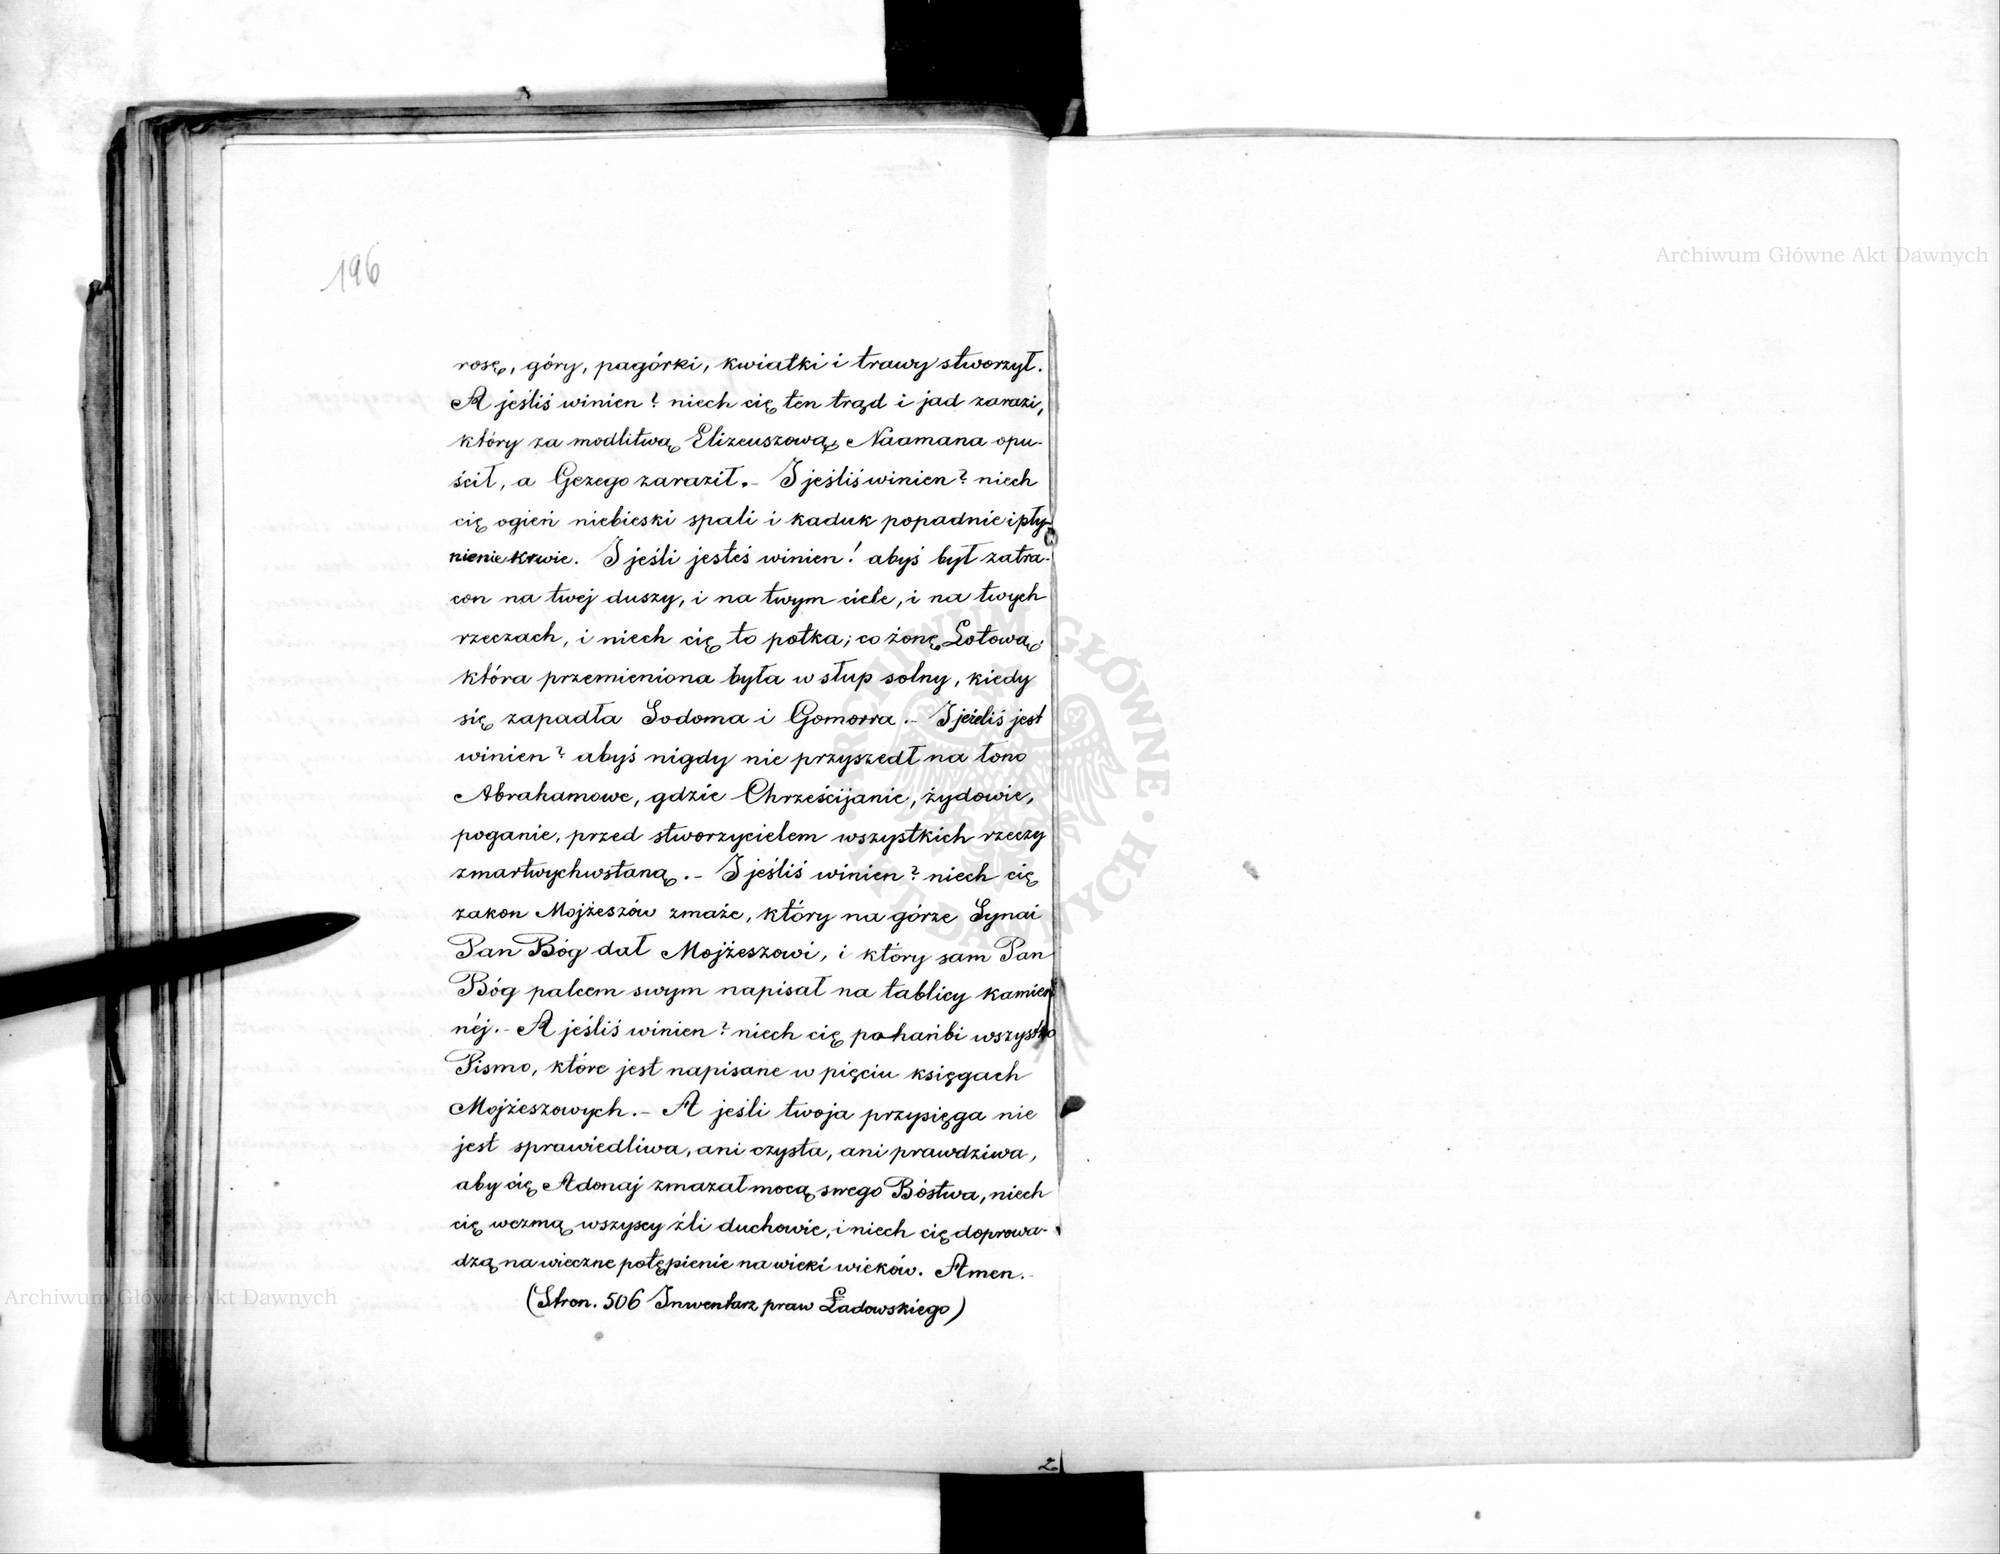 196
rosę, góry, pagórki, kwiatki i trawy stworzył.
A jeśliś winien? niech cię ten trąd i jad zarazi,
który za modlitwą Elizeuszową, Naamana opu-
ścił, a Gezego zaraził.- I jeśliś winien? niech
cię ogień niebieski spali i kaduk popadnie i pły-
nienie krwie. I jeśli jesteś winien! abyś był zatra-
con na twej duszy, i na twym ciele, i na twych
rzeczach, i niech cię to potka; co żonę Lotową,
która przemieniona była w słup solny, kiedy
się zapadła Sodoma i Gomorra.- I jeżeliś jest
winien? abyś nigdy nie przyszedł na łono
Abrahamowe, gdzie Chrześcijanie, żydowie,
poganie, przed stworzycielem wszystkich rzeczy
zmartwychwstaną.- I jeśliś winien? niech cię
zakon Mojżeszów zmaże, który na górze Synai
Pan Bóg dał Mojżeszowi, i który sam Pan
Bóg palcem swym napisał na tablicy kamien
néj.- A jeśliś winien? niech cię pohańbi wszystko
Pismo, które jest napisane w pięciu księgach
Mojżeszowych.- A jeśli twoja przysięga nie
jest sprawiedliwa, ani czysta, ani prawdziwa,
aby cię Adonaj zmazał mocą swego Bóstwa, niech
cię wezmą wszyscy źli duchowie, i niech cię doprowa-
dzą na wieczne potępienie na wieki wieków. Amen.-
(Stron. 506 Inwentarz praw Ładowskiego)
2
Archiwum Główne Akt Dawnych
Archiwum Główne Akt Dawnych
ARCHIWUM GŁÓWNE AKT DAWNYCH